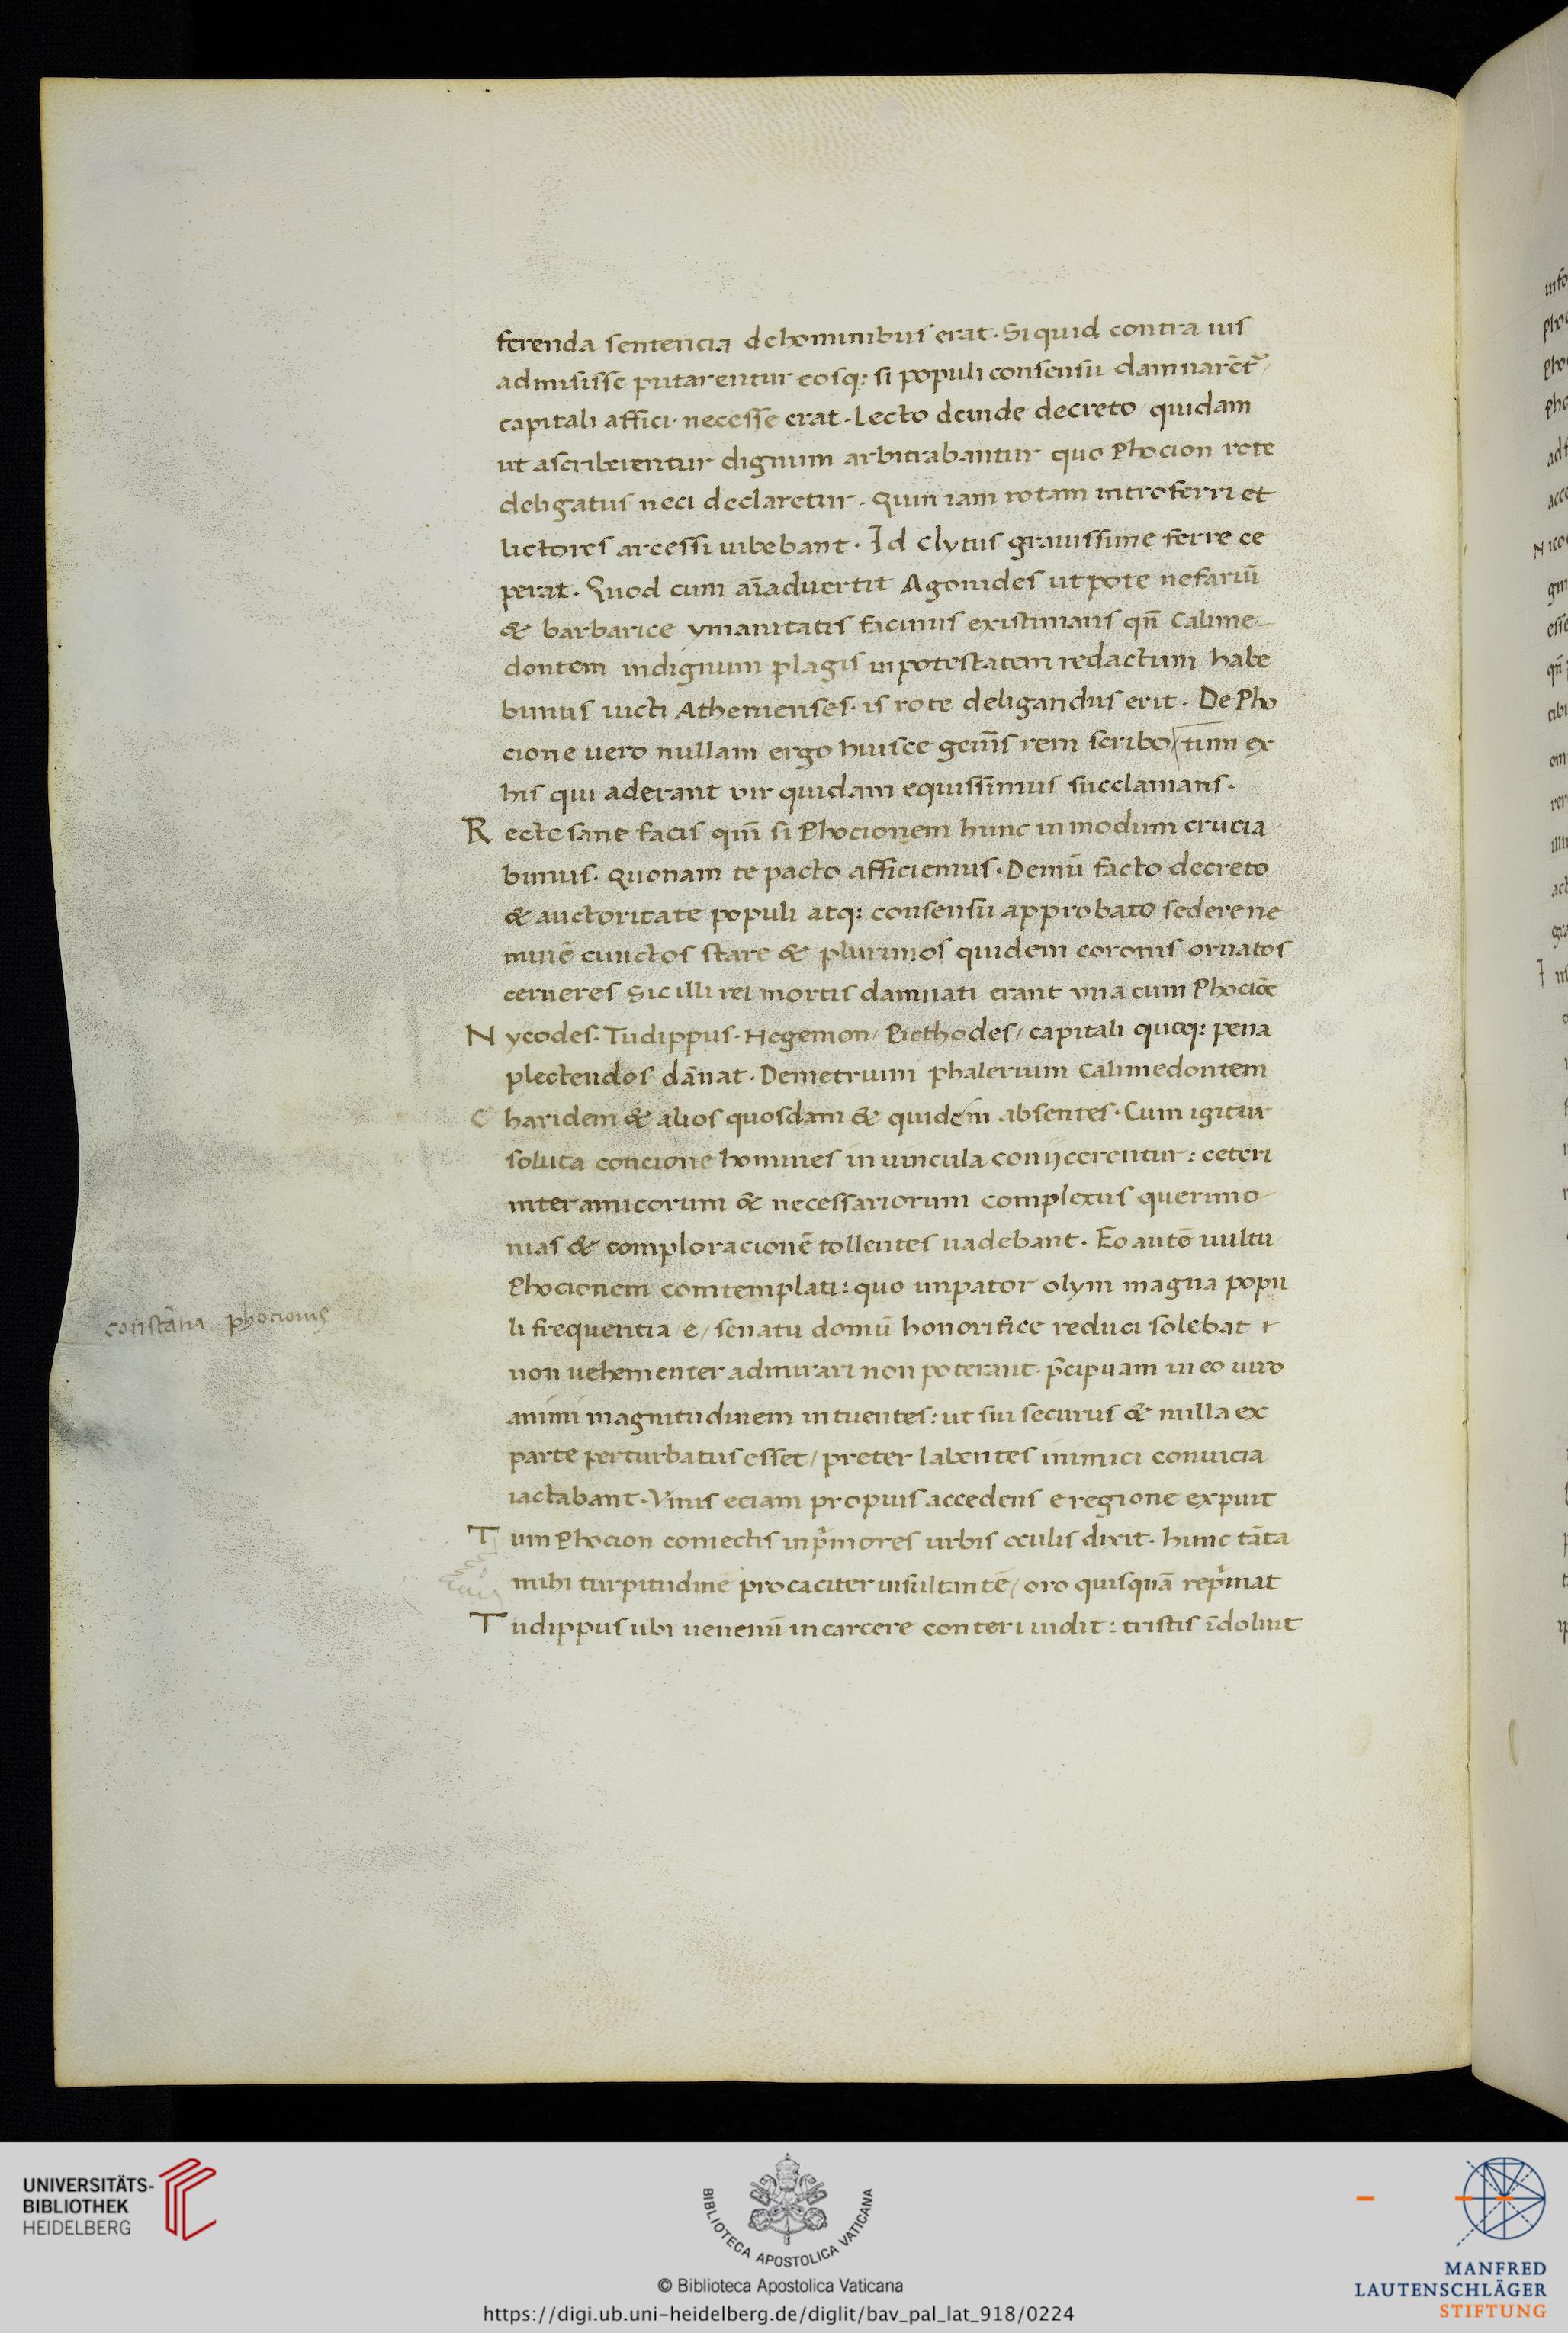 ferenda sentencia de hominibus erat. Si quid contra ius
admisisse putarentur eosq: si populi consensu damnarēt᷑/
capitali affici necesse erat. Lecto deinde decreto quidam
ut ascriberentur dignum arbitrabantur quo Phocion rote
deligatus neci declaretur. Quin iam rotam intro ferri et
lictores arcessi iubebant. Id Clytus grauissime ferre ce
perat. Quod cum aīaduertit Agonides utpote nefariū
& barbarice ymanitatis facinus existimans qn̄ Calime-
dontem indignum plagis in potestatem redactum habe
bimus uicti Athenienses. is rote deligandus erit. De Pho
cione uero nullam ergo huiusce gen̄is rem scribo/ tum ex
his qui aderant vir quidam equissimus succlamans.
Recte sane facis qm̄ si Phocionem hunc in modum crucia
bimus. quonam te pacto afficiemus. Demū facto decreto
& auctoritate populi atq: consensu approbato sedere ne
minē cunctos stare & plurimos quidem coronis ornatos
cerneres Sic illi rei mortis damnati erant vna cum Phociōe
Nycodes. Tudippus. Hegemon/ Picthodes/ capitali quoq: pena
plectendos dānat. Demetrium phalerium Calimedontem
Charidem & alios quosdam & quidem absentes. Cum igitur
soluta concione homines in uincula conijcerentur: ceteri
inter amicorum & necessariorum complexus querimo-
nias & comploracionē tollentes uadebant. Eo autō uultu
Phocionem comtemplati: quo inpator olym magna popu
li frequentia/e/ senatu domū honorifice reduci solebat r
non uehementer admirari non poterant. p̄cipuam in eo uiro
animi magnitudinem intuentes: ut sui securus & nulla ex
parte perturbatus esset/ preter labentes inimici conuicia
iactabant. Vnus eciam propius accedens e regione expuit
Tum Phocion coniectis in p̄mores urbis oculis dixit. hunc tāta
mihi turpitudine procaciter insultantē/ oro quisquā rep̄mat
Tudippus ubi uenenū in carcere conteri uidit: tristis īdoluit
constātia phocionis
UNIVERSITÄTS-
BIBLIOTHEK
HEIDELBERG
BIBLIOTECA APOSTOLICA VATICANA
© Biblioteca Apostolica Vaticana
https://digi.ub.uni-heidelberg.de/diglit/bav_pal_lat_918/0224
MANFRED
LAUTENSCHLÄGER
STIFTUNG